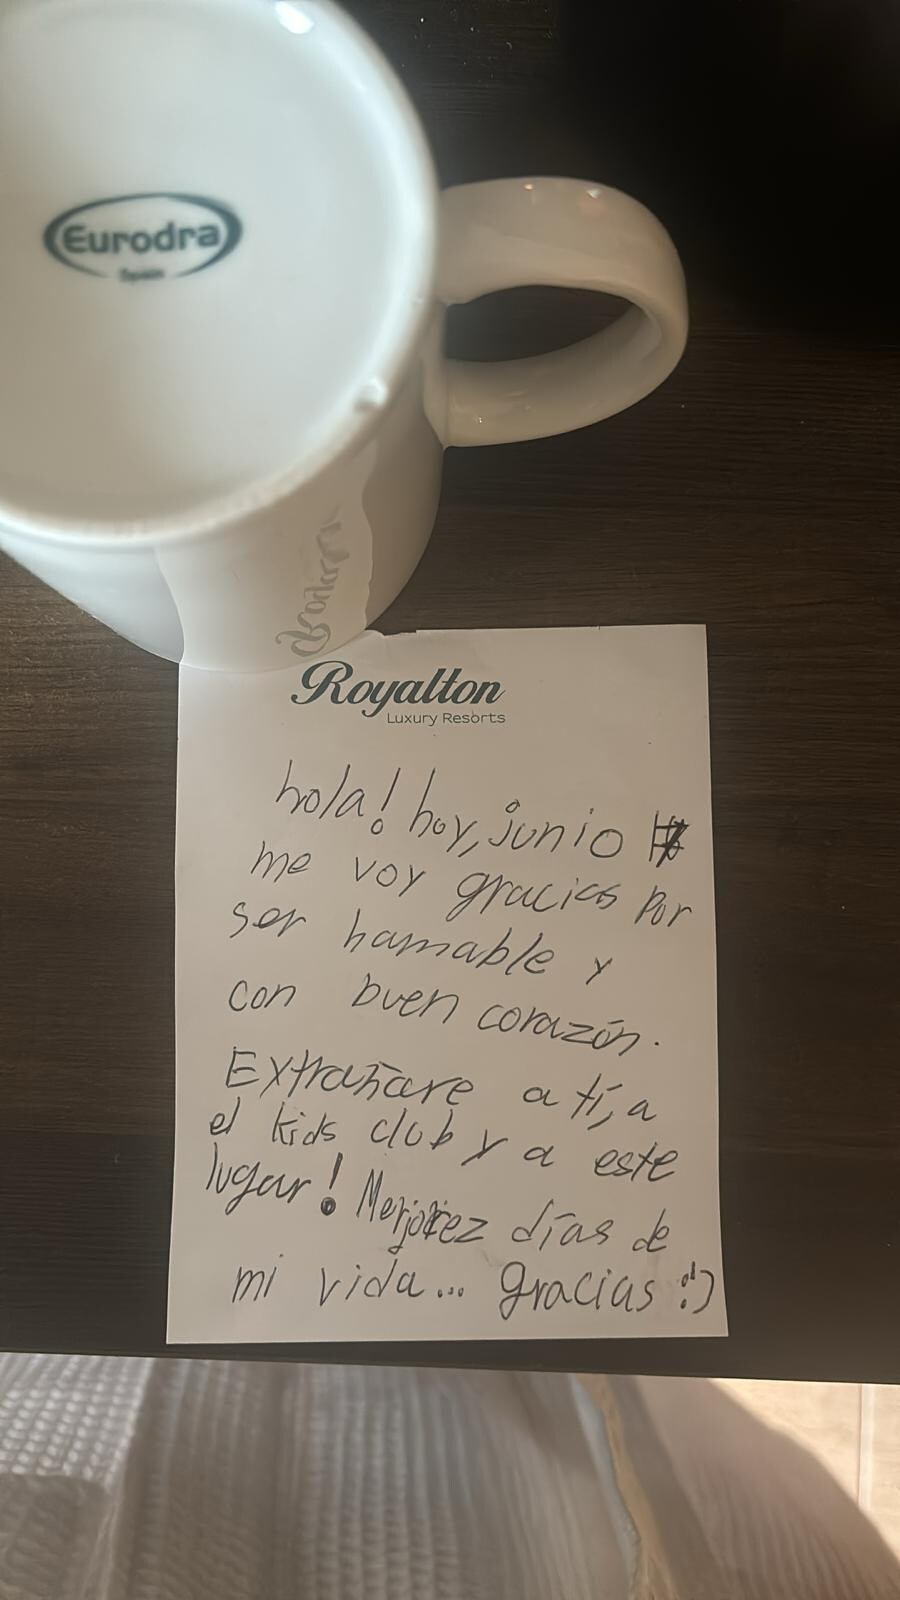 Eurodra
Spain
Royalton
Luxury Resorts
hola! hoy, junio
me voy gracias por
ser hamable y
con buen corazón.
Extrañare a tí, a
el kids club y a este
lugar! Merjorez días de
mi vida... gracias :)